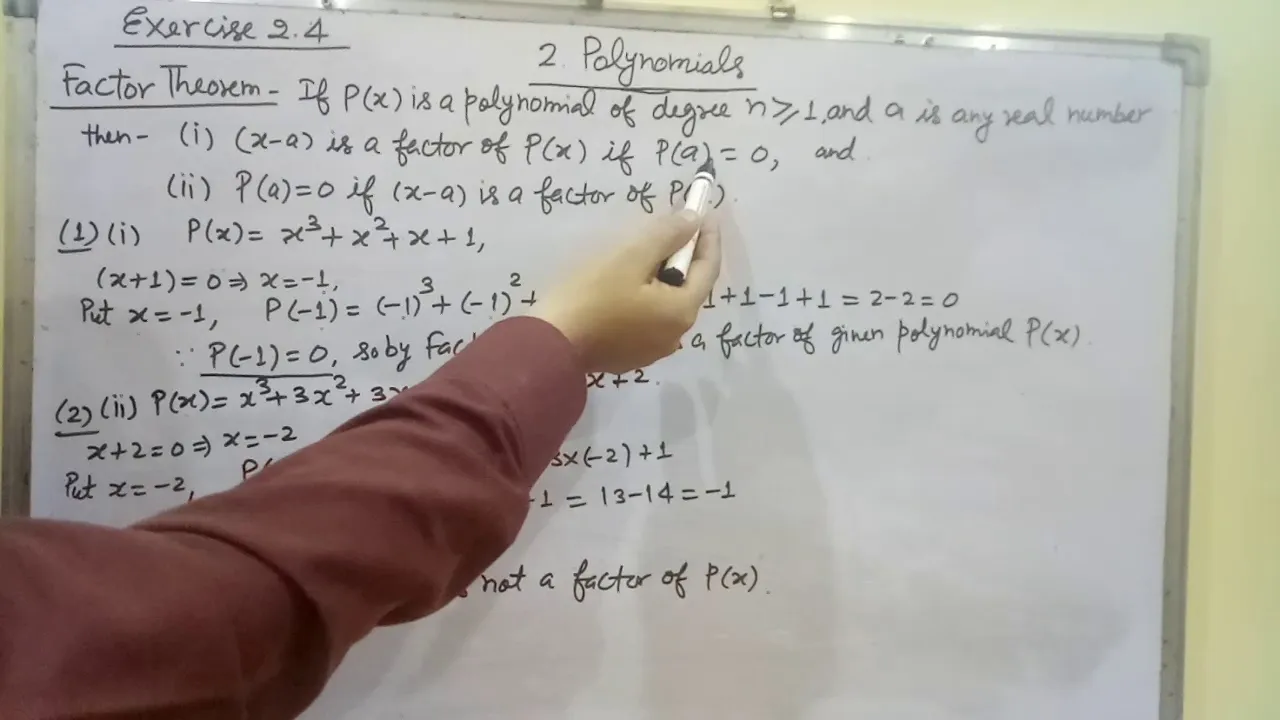 Exercise 2.4
2. Polynomials
Factor Theorem - If P(x) is a polynomial of degree n ≥ 1, and a is any real number
then - (i) (x-a) is a factor of P(x) if P(a) = 0, and
(ii) P(a)=0 if (x-a) is a factor of P(
(1) (i) P(x) = x³ + x² + x + 1,
(x+1) = 0 ⇒ x = -1,
Put x = -1, P(-1) = (-1)³ + (-1)² + 1+1-1+1 = 2-2 = 0
∵ P(-1) = 0, so by Fac a factor of given polynomial P(x).
(2) (ii) P(x) = x³ + 3x² + 3x x+2.
x+2 = 0 ⇒ x = -2
Put x = -2, P( 3x(-2)+1
-1 = 13-14 = -1
not a factor of P(x).